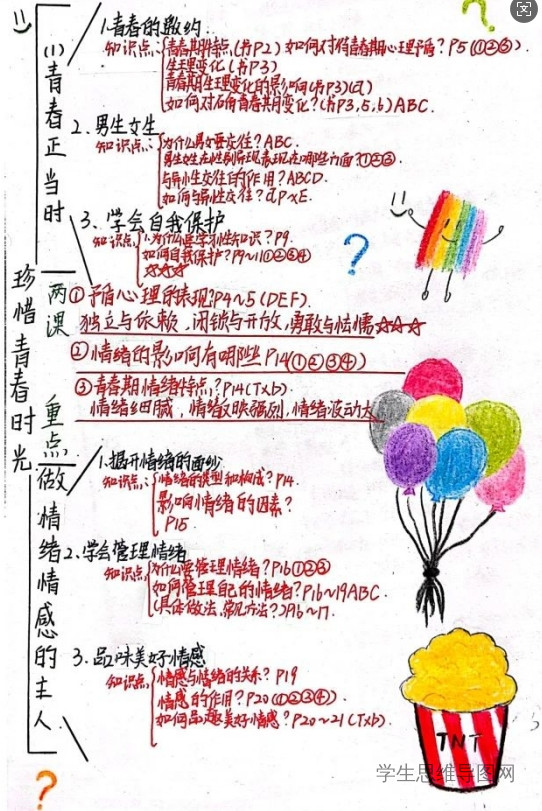 珍惜青春时光
(1)青春正当时
1.青春的邀约
知识点:
青春期特点(书P2) 如何对待青春期心理矛盾?P5(①②③)
生理变化(书P3)
青春期生理变化的影响(书P3)
如何对待青春期变化?(书P3,5,6)ABC.
2.男生女生
知识点:
为什么男女要交往?ABC.
男生女生在性别异现表现在哪些方面?①②③.
与异性交往的作用?ABCD.
如何与异性交往?
3.学会自我保护
知识点
1.为什么要学习性知识?P9.
如何自我保护?P9~11①②③④
☆☆☆
两课重点
①矛盾心理的表现?P4~5(DEF).
独立与依赖,闭锁与开放,勇敢与怯懦☆☆☆
②情绪的影响有哪些P14(①②③④)
③青春期情绪特点?P14(TXb).
情绪细腻,情绪反映强烈,情绪波动大
做情绪情感的主人
1.揭开情绪的面纱
知识点:
情绪的类型和构成?P14.
影响情绪的因素?
P15.
2.学会管理情绪
知识点
为什么要管理情绪?P16①②③
如何管理自己的情绪?P16~19ABC.
(具体做法,常见方法?)P16~17.
3.品味美好情感
知识点
情感与情绪的关系?P19
情感的作用?P20(①②③④).
如何品趣美好情感?P20~21(TXb).
?
?
?
TNT
学生思维导图网